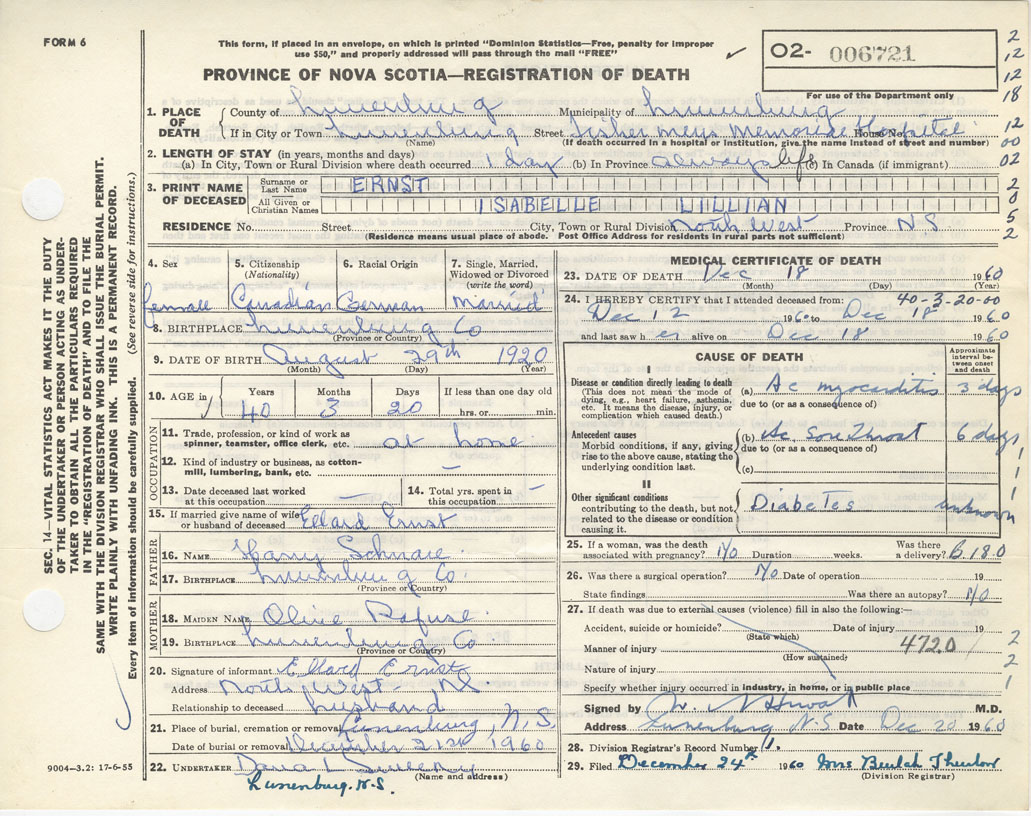 FORM 6
This form, if placed in an envelope, on which is printed "Dominion Statistics—Free, penalty for improper
use $50," and properly addressed will pass through the mail "FREE"
PROVINCE OF NOVA SCOTIA—REGISTRATION OF DEATH
O2- 006721
For use of the Department only
2
12
12
18
12
00
02
2
0
5
2
SEC. 14—VITAL STATISTICS ACT MAKES IT THE DUTY
OF THE UNDERTAKER OR PERSON ACTING AS UNDER-
TAKER TO OBTAIN ALL THE PARTICULARS REQUIRED
IN THE "REGISTRATION OF DEATH" AND TO FILE THE
SAME WITH THE DIVISION REGISTRAR WHO SHALL ISSUE THE BURIAL PERMIT.
WRITE PLAINLY WITH UNFADING INK. THIS IS A PERMANENT RECORD.
Every item of information should be carefully supplied. (See reverse side for instructions.)
1. PLACE OF DEATH County of Lunenburg Municipality of Lunenburg
If in City or Town Lunenburg Street Fishermens Memorial Hospital House No.
(Name) (If death occurred in a hospital or institution, give the name instead of street and number)
2. LENGTH OF STAY (in years, months and days)
(a) In City, Town or Rural Division where death occurred 1 day (b) In Province always life (c) In Canada (if immigrant)
3. PRINT NAME OF DECEASED Surname or Last Name ERNST
All Given or Christian Names ISABELLE LILLIAN
RESIDENCE No. Street City, Town or Rural Division North West Province N S
(Residence means usual place of abode. Post Office Address for residents in rural parts not sufficient)
4. Sex 5. Citizenship (Nationality) 6. Racial Origin 7. Single, Married, Widowed or Divorced (write the word)
female Canadian German Married
8. BIRTHPLACE Lunenburg Co
(Province or Country)
9. DATE OF BIRTH August 29th 1920
(Month) (Day) (Year)
10. AGE in Years Months Days If less than one day
40 3 20 hrs. or min.
OCCUPATION
11. Trade, profession, or kind of work as spinner, teamster, office clerk. at home
12. Kind of industry or business, as cotton-mill, lumbering, bank, etc. —
13. Date deceased last worked at this occupation — 14. Total yrs. spent in this occupation —
15. If married give name of wife or husband of deceased Ellard Ernst
FATHER
16. NAME Harry Schnare
17. BIRTHPLACE Lunenburg Co.
(Province or Country)
MOTHER
18. MAIDEN NAME Olive Rafuse
19. BIRTHPLACE Lunenburg Co
(Province or Country)
20. Signature of informant Ellard Ernst
Address North West NS
Relationship to deceased husband
21. Place of burial, cremation or removal Lunenburg, N.S.
Date of burial or removal December 21st 1960
22. UNDERTAKER
(Name and address)
Lunenburg. N.S.
9004-3.2: 17-6-55
MEDICAL CERTIFICATE OF DEATH
23. DATE OF DEATH Dec 18 1960
(Month) (Day) (Year)
40-3-20-00
24. I HEREBY CERTIFY that I attended deceased from:
Dec 12 1960 to Dec 18 1960
and last saw her alive on Dec 18 1960
CAUSE OF DEATH
Approximate interval between onset and death
I
Disease or condition directly leading to death (a) Ac myocarditis 3 days
(This does not mean the mode of dying, e.g., heart failure, asthenia, etc. It means the disease, injury, or complication which caused death.)
due to (or as a consequence of)
Antecedent causes (b) Ac. Sore Throat 6 days
Morbid conditions, if any, giving rise to the above cause, stating the underlying condition last.
due to (or as a consequence of)
(c)
II
Other significant conditions contributing to the death, but not related to the disease or condition causing it.
Diabetes unknown
25. If a woman, was the death associated with pregnancy? No Duration weeks. Was there a delivery? B.180
26. Was there a surgical operation? No Date of operation 19
State findings Was there an autopsy? No
27. If death was due to external causes (violence) fill in also the following:—
Accident, suicide or homicide? Date of injury 19
(State which)
Manner of injury 472.0
(How sustained)
Nature of injury
Specify whether injury occurred in industry, in home, or in public place
Signed by M.D.
Address Lunenburg N.S. Date Dec 20 1960
28. Division Registrar's Record Number 1.
29. Filed December 24th 1960 Mrs Beulah
(Division Registrar)
1
1
1
1
2
2
1